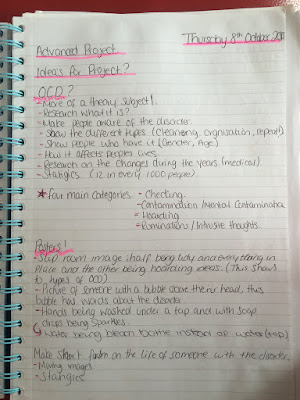 Thursday 8th October 2015
Advanced Project
Idea's for Project?
OCD?
- More of a theory subject!
- Research what it is?
- Make people aware of the disorder.
- Show the different types (Cleaning, orgnisation, repeat)
- Show people who have it (Gender, Age)
- How it affects peoples lives.
- Research on the changes during the years (medical)
- Statigics (12 in every 1000 people).
* four main categories - Checking.
- Contamination / Mental Contamination
- Hoarding
- Ruminations / Intrusive thoughts.
Posters!
room image (half being tidy and everything in
place and the other being hoarding ideas. (This shows
to types of OCD)
- Picture of someone with a bubble above their head, this
bubble has words about the disorder
- Hands being washed under a tap and with soap
drops being sparkles.
Water being bleach bottle instead of water (tap)
Make short film on the life of someone with the disorder.
- Moving images
- Staingics